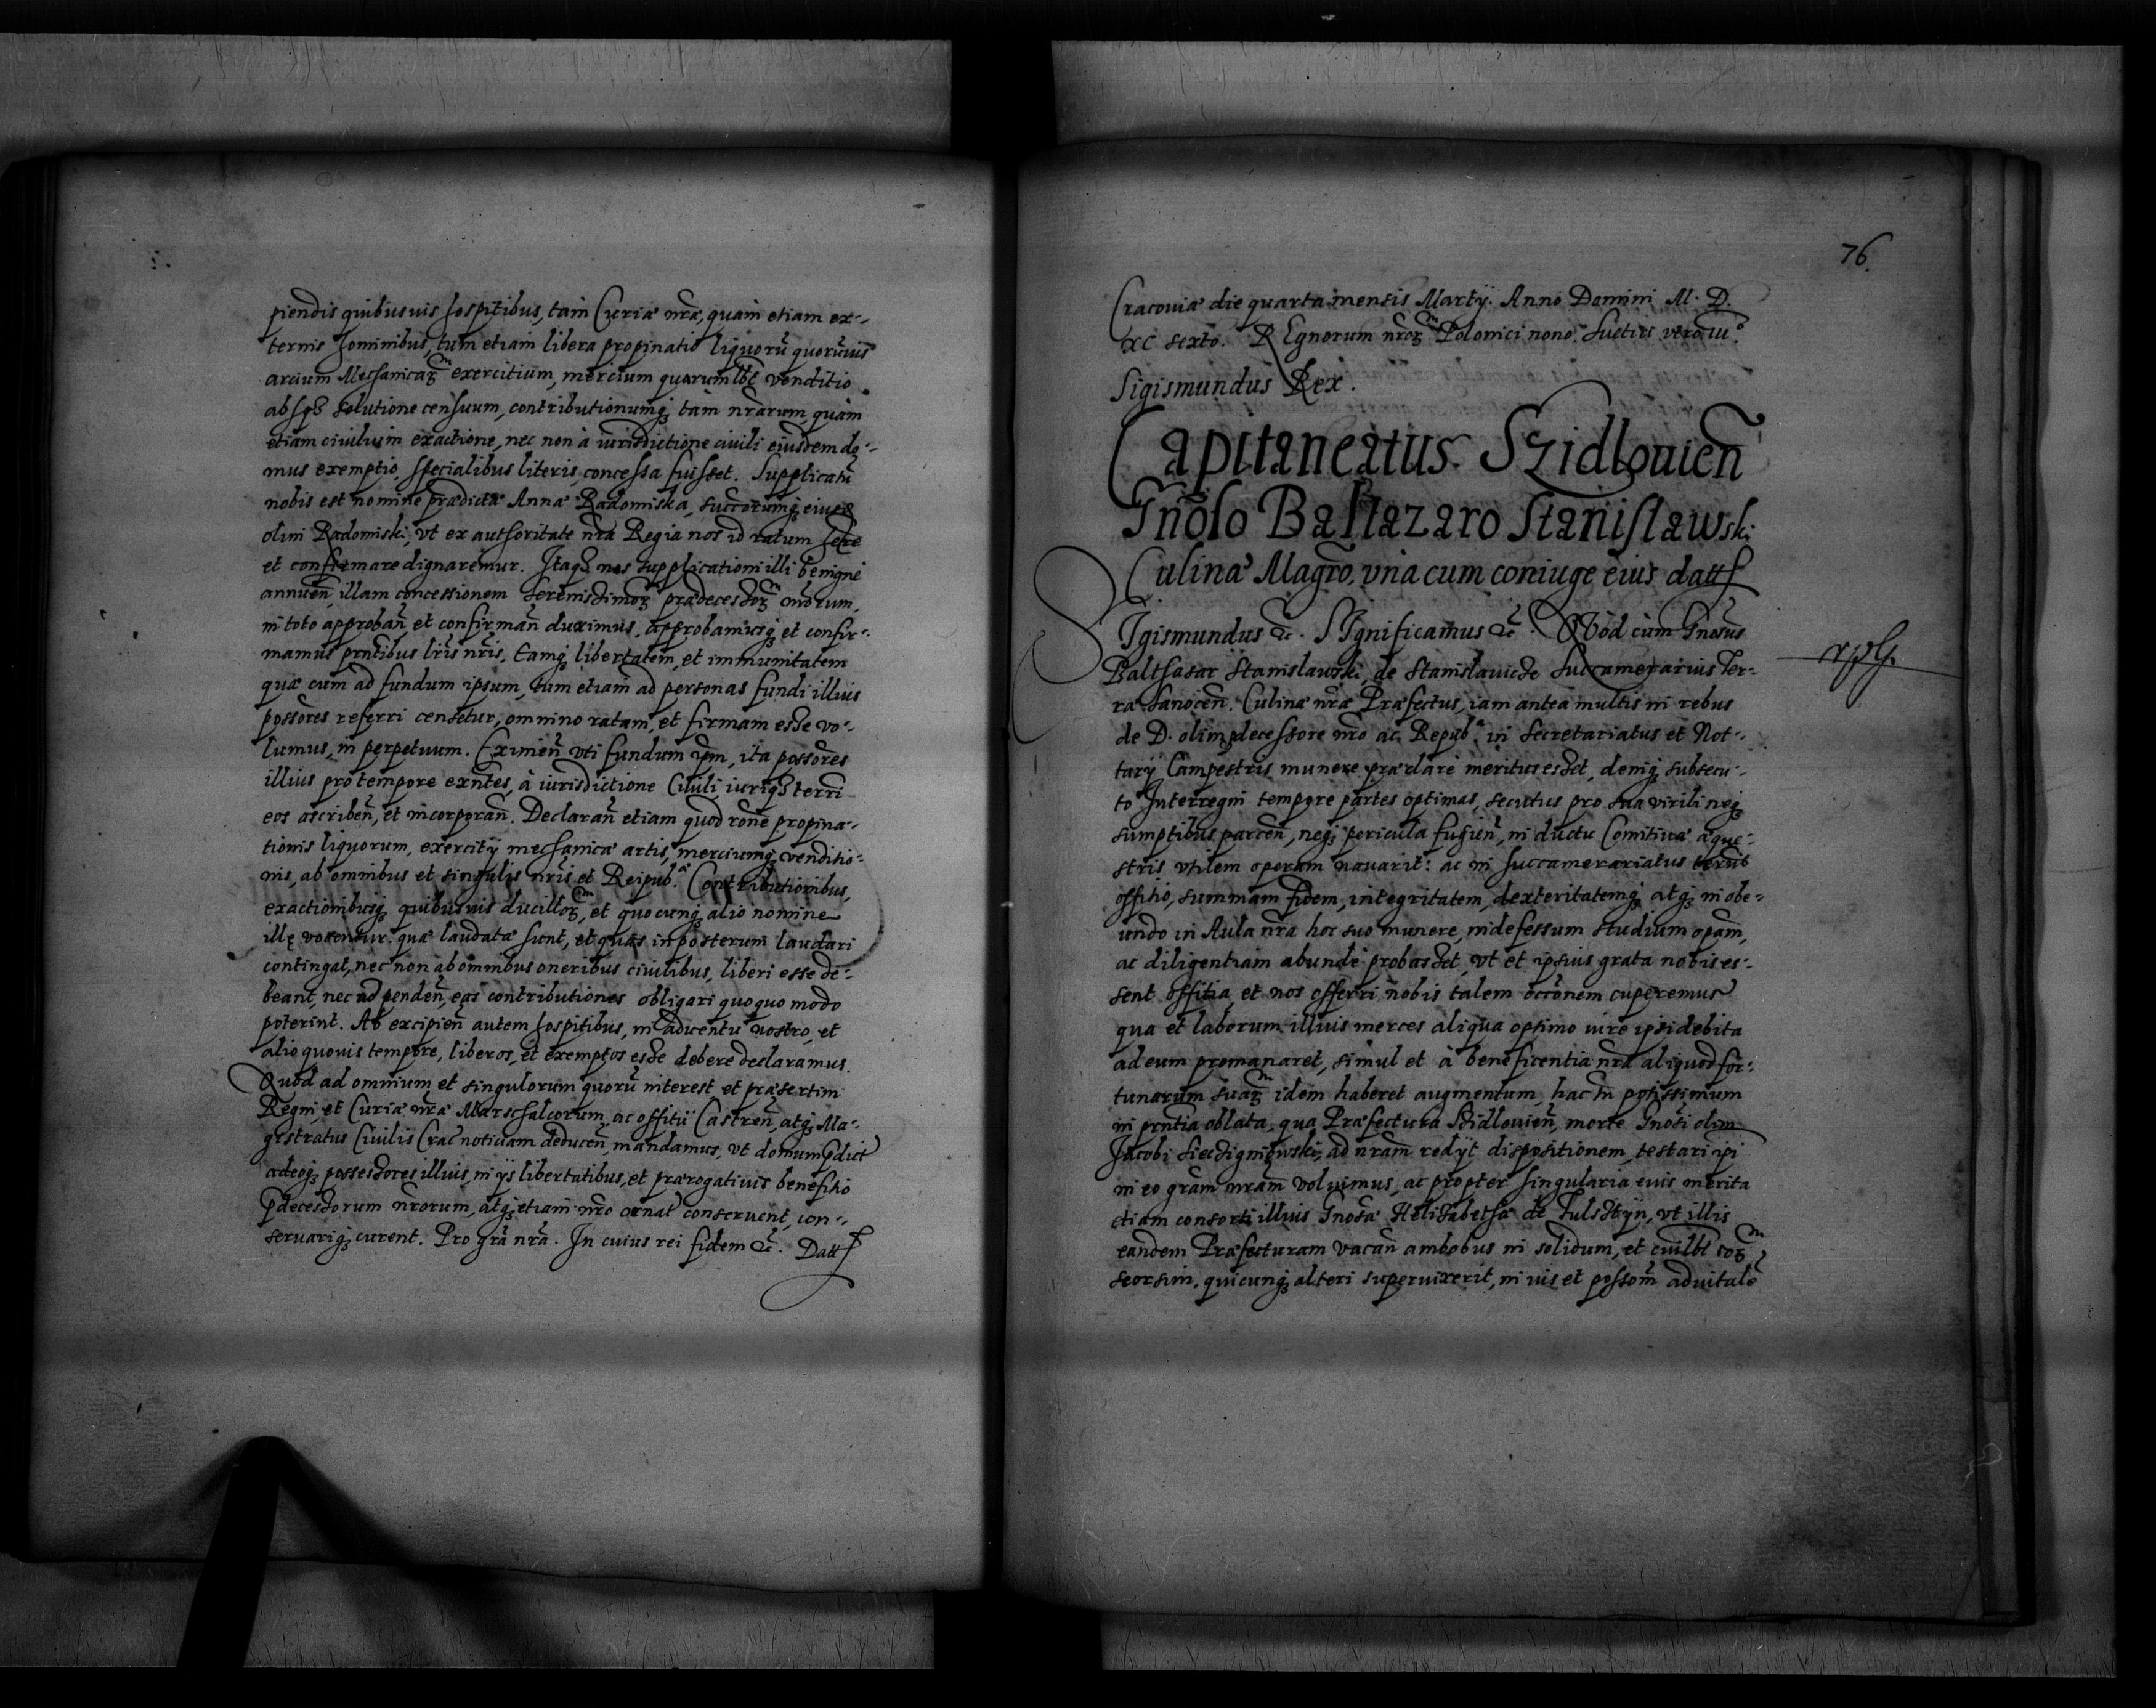 piendis quibusuis hospitibus, tam Curiæ nr̃æ, quam etiam ex-
ternis hominibus, tum etiam libera propinatio liquorũ quorũuis
artium Mechanicaꝝ exercitium, mercium quarumlibet venditio
absqꝫ solutione censuum, contributionumqꝫ tàm nr̃arum, quàm
etiam ciuilium exactione, nec non à iurisdictione ciuili eiusdem do-
mus exemptio specialibus literis concessa fuisset. Supplicatũ
nobis est nomine prædictæ Annæ Radomiska, succorumqꝫ eius
olim Radomiski, vt ex authoritate nr̃a Regia nos id ratum h̃ere
et confirmare dignaremur. Itaqꝫ nos supplicationi illi benignè
annuen̄, illam concessionem Serenissimoꝝ prædecessoꝝ nr̃orum,
in toto approban̄ et confirman̄ duximus, approbamusqꝫ et confir-
mamus pr̃ntibus lr̃is nr̃is, Eamqꝫ libertatem, et immunitatem
quæ cum ad fundum ipsum, tum etiam ad personas fundi illius
possores referri censetur, omnino ratam, et firmam esse vo-
lumus, in perpetuum. Eximien̄ vti fundum ipm̃, ita possores
illius pro tempore exñtes, à iurisdictione Ciuili, iuriqꝫ terrĩ
eos ascriben̄, et incorporan̄. Declaran̄ etiam quod rõne propina-
tionis liquorum, exercitij mechanicæ artis, merciumqꝫ venditio-
nis, ab omnibus et singulis nr̃is et Reipub.ᶜᵃ Contributionibus,
exactionibusqꝫ quibusuis ducilloꝝ, et quocunqꝫ alio nomine
illę vocentur: quæ laudatæ sunt, et quas in posterum laudari
contingat, nec non ab omnibus oneribus ciuilibus, liberi esse de-
beant, nec ad penden̄, eas contributiones obligari quoquo modo
poterint. Ab excipien̄ autem hospitibus, in aduentu nostro, et
alio quouis tempore, liberos, et exemptos esse debere declaramus.
Quod ad omnium et singulorum quorũ interest et præsertim
Regni, et Curiæ nr̃æ Marschalcorum, ac offitij Castren̄, atqꝫ Ma-
gistratus Ciuilis Crac̃ noticiam deducen̄, mandamus, vt domum p̃dict̃
adeoqꝫ possessores illius, in ijs libertatibus, et prærogatiuis benefitio
p̃decessorum nr̃orum, atqꝫ etiam nr̃o ornat̃ conseruent, con-
seruariqꝫ curent. Pro grã nr̃a. In cuius rei fidem &c. Datt
76.
Cracouiæ die quarta mensis Martij. Anno Domini M. D.
XC sexto. REgnorum nr̃oꝝ Polonici nono. Suetici vero iii°
Sigismundus Rex.
Capitaneatus Szidlouien̄
Gñoso Baltazaro Stanislawski
Culinæ Magr̃o, vnà cum coniuge eius datt
SIgismundus &c. SIgnificamus &c. QVod cùm Gnosus
Balthasar Stanislawski, de Stanislauicze Succamerarius Ter-
ræ Sanocen̄. Culinæ nr̃æ Præfectus, iam antea multis in rebus
de D. olim p̃decessore nr̃o ac Repub.ᶜᵃ in Secretariatus et Not-
tarij Campestris munere præclarè meritus esset, deniqꝫ subsecu-
to Interregni tempore partes optimas, secutus pro sua virili neqꝫ
sumptibus parcen̄, neqꝫ pericula fugien̄, in ductu Comitiuæ æque-
stris vtilem operam nauarit: ac in Succamerariatus terris
offitio, summam fidem, integritatem, dexteritatemqꝫ atqꝫ in obe-
undo in Aula nr̃a hoc suo munere, indefessum studium opam̃,
ac diligentiam abundè probasset, vt et ipsius grata nobis es-
sent offitia, et nos offerri nobis talem occõnem cuperemus
qua et laborum illius merces aliqua optimo iure ipsi debita
ad eum promanaret, simul et à beneficentia nr̃a aliquod for-
tunarum suaꝝ idem haberet augmentum, hac tñ potissimum
in pr̃ntia oblata, qua Præfectura Szidlouien̄, morte Gnosi olim
Jacobi Siecʒigniowski, ad nr̃am redijt dispositionem, testari ipi
in eo grãm nr̃am voluimus, ac propter singularia euis merita
etiam consorti illius Gnosæ Helisabethæ de Fulsstijn, vt illis
eandem Præfecturam vacan̄ ambobus in solidum, et cuilbt eoꝝ
seorsim, quicunqꝫ alteri superuixerit, in ius et possom̃ aduitalẽ